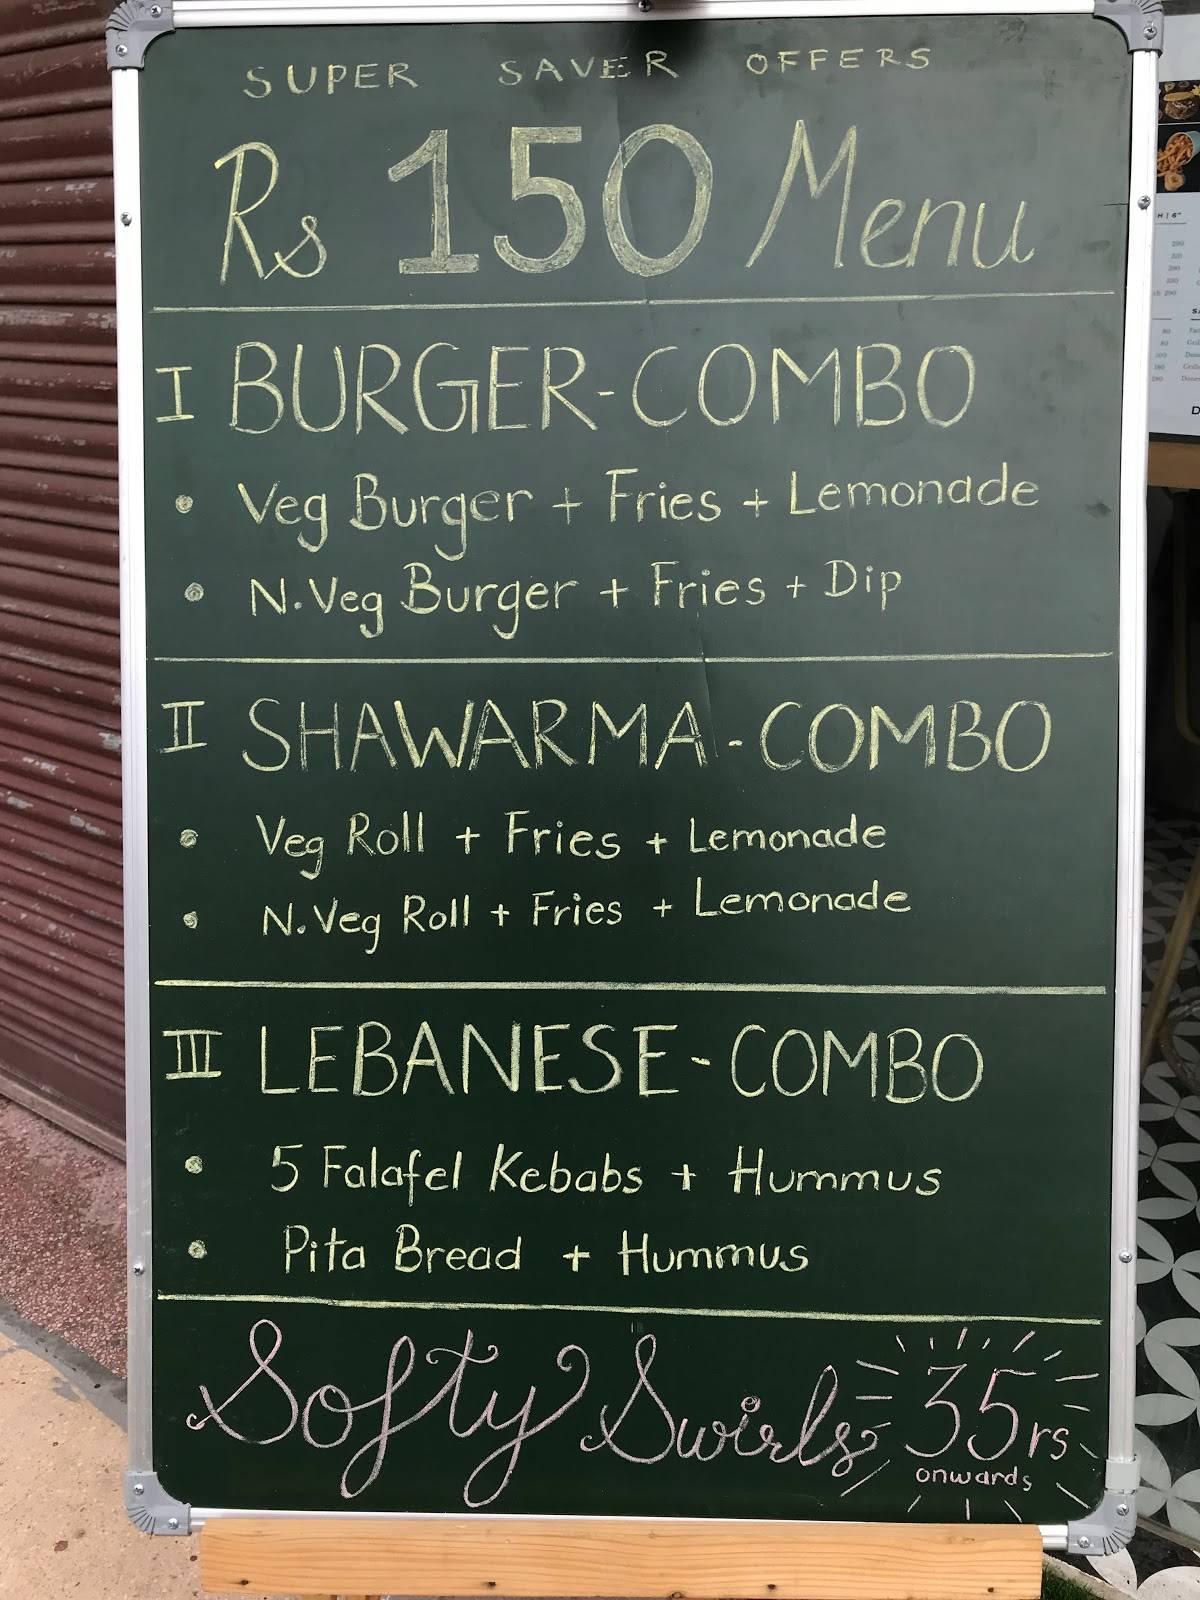 SUPER SAVER OFFERS
Rs 150 Menu
I BURGER-COMBO
• Veg Burger + Fries + Lemonade
• N.Veg Burger + Fries + Dip
II SHAWARMA-COMBO
• Veg Roll + Fries + Lemonade
• N.Veg Roll + Fries + Lemonade
III LEBANESE-COMBO
• 5 Falafel Kebabs + Hummus
• Pita Bread + Hummus
Softy Swirls 35rs
onwards